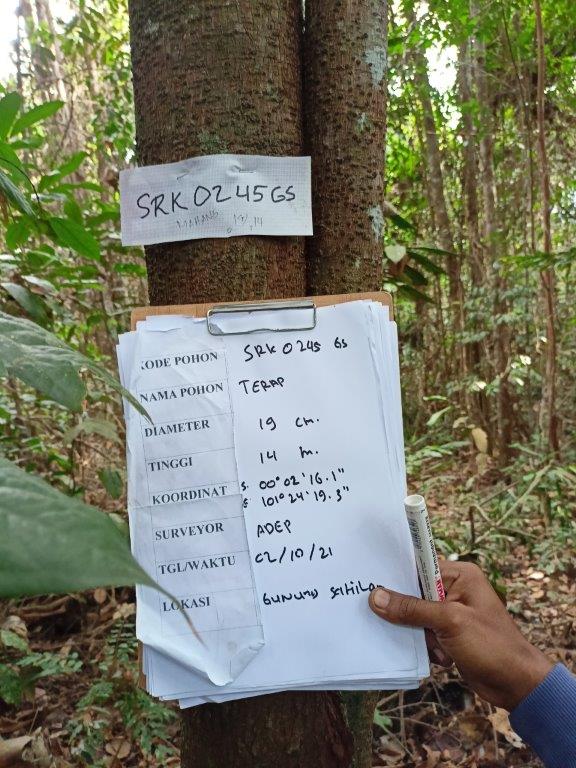 SRK 0245 GS
19/14
KODE POHON SRK 0245 GS
NAMA POHON TERAP
DIAMETER 19 cm.
TINGGI 14 m.
KOORDINAT S. 00°02'16.1"
E 101°24'19.3"
SURVEYOR ADEP
TGL/WAKTU 02/10/21
LOKASI GUNUNG SAHILAN